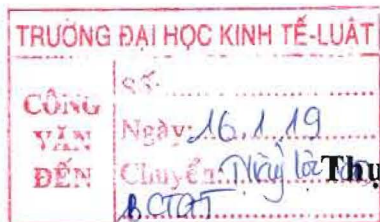 TRƯỜNG ĐẠI HỌC KINH TẾ-LUẬT
CÔNG VĂN ĐẾN
Số:
Ngày: 16.1.19
Chuyển:
Thụ